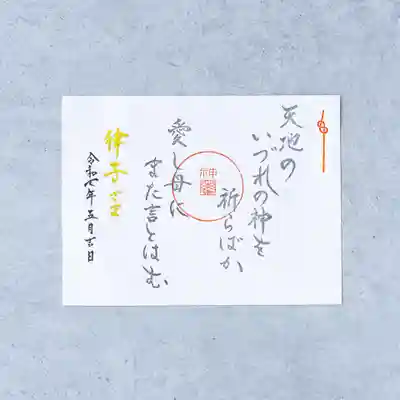 天地の
いづれの神を
祈らばか
愛し母に
また言とはむ
律子さま
令和七年五月吉日